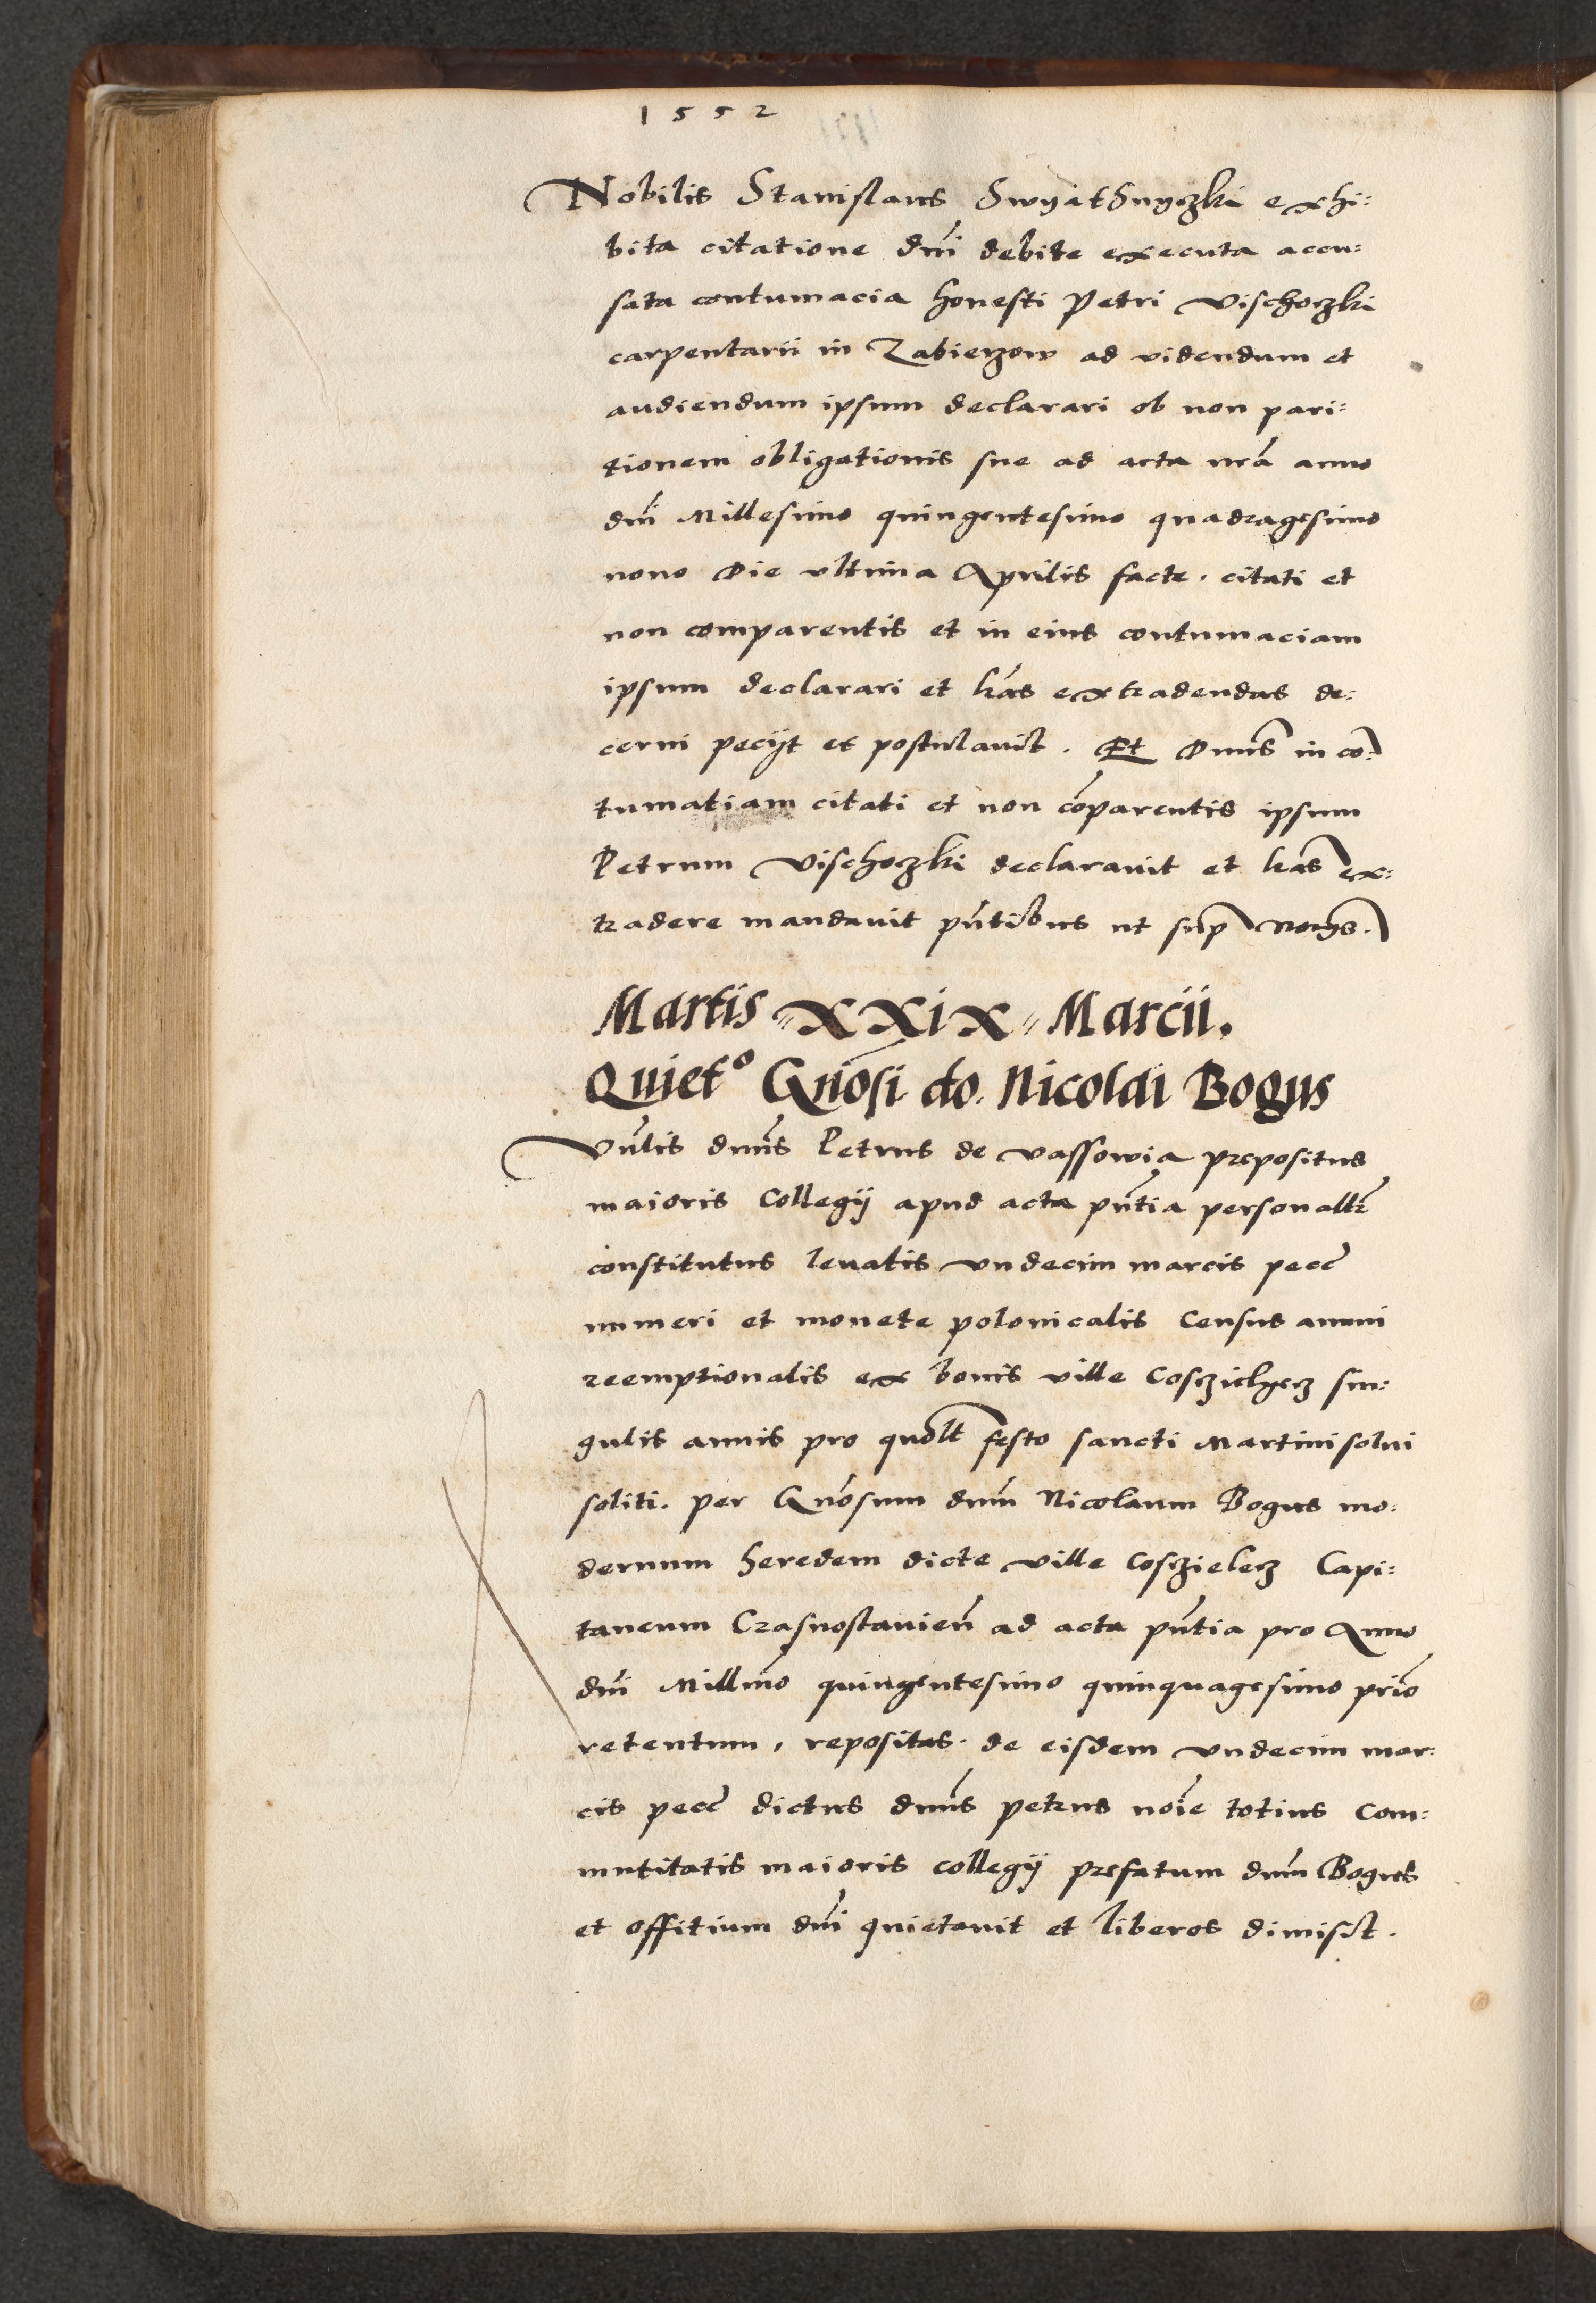 1552
Nobilis Stanislaus SwyatSnyczki exhi:
bita citatione dni debite executa accu:
sata contumacia honesti Petri Vischoczki
carpentarii in Zabierzow ad videndum et
audiendum ipsum declarari ob non pari:
tionem obligationis sue ad acta nra anno
dni Millesimo quingentesimo quadragesimo
nono Die ultima Aprilis facte. citati et
non comparentis et in eius contumaciam
ipsum declarari et lras extradendas de:
cerni pecijt et postulavit. Et Dnus in co:
tumatiam citati et non coparentis ipsum
Petrum Vischoczki declaravit et lras ex:
tradere mandavit pntibus ut sup
Martis XXIX Marcii.
Quieto Gnosi do. Nicolai Bogus
Vnlis dnus Petrus de Vassowia prepositus
maioris Collegij apud acta pntia personaltr
constitutus levatis undecim marcis pecc
numeri et monete polonicalis Census annui
reemptionalis ex bonis ville Cosczielyecz sin:
gulis annis pro quolt festo sancti Martini solvi
soliti. per Gnosum dnm Nicolaum Bogus mo:
dernum heredem dicte ville Cosczielecz Capi:
taneum Crasnostavien ad acta pntia pro Anno
dni Millmo quingentesimo quinquagesimo primo
retentum, repositas. de eisdem undecim mar:
cis pecc dictus dnus petrus noie totius Com:
mutitatis maioris collegij prefatum dnm Bogus
et offitium dni quietavit et liberos dimisit.